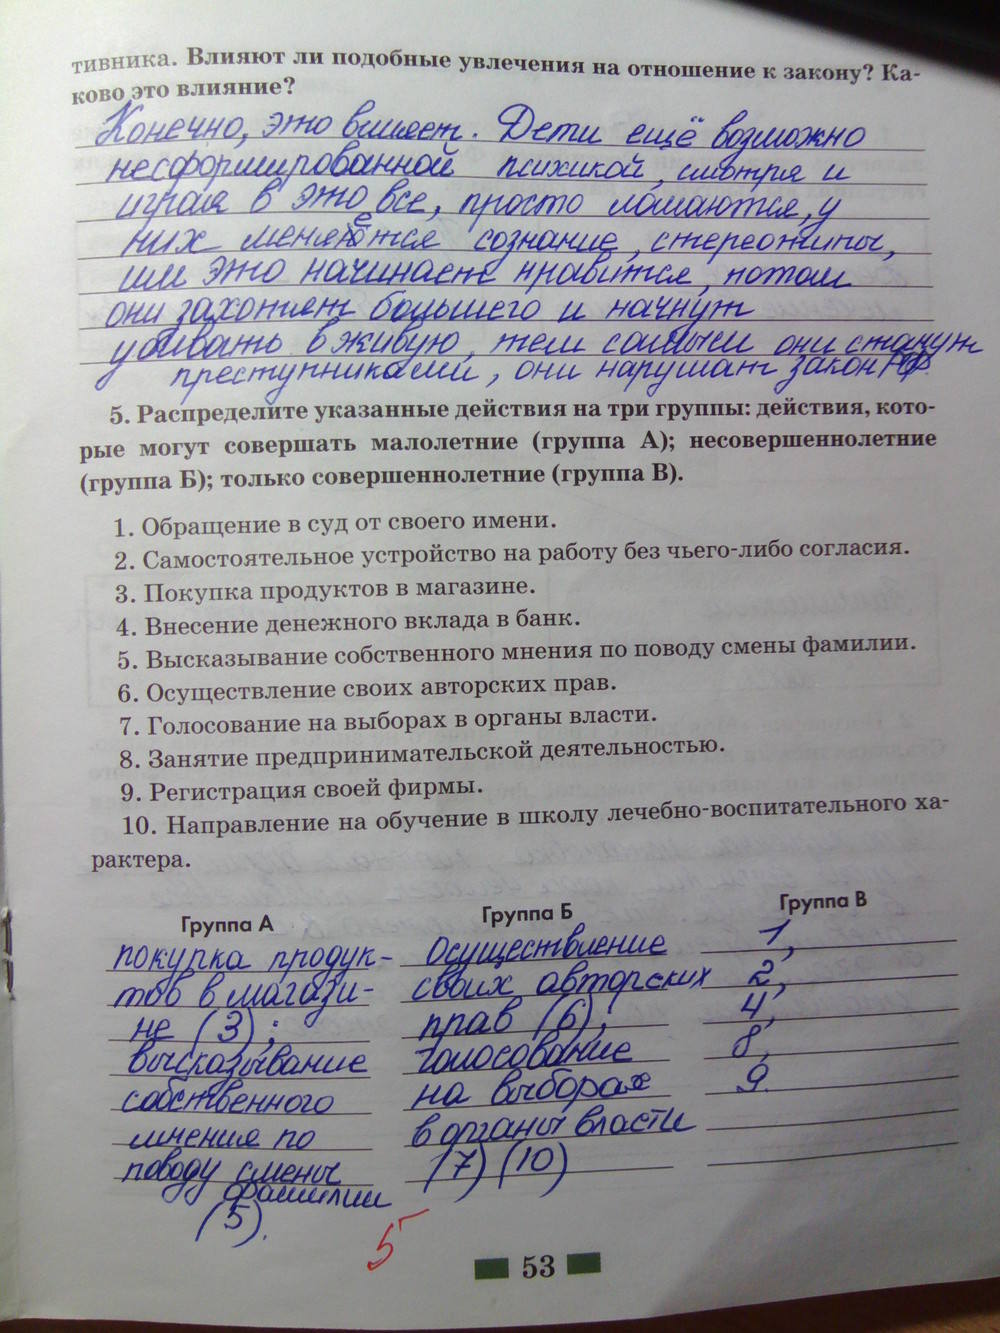 тивника. Влияют ли подобные увлечения на отношение к закону? Ка-
ково это влияние?
Конечно, это влияет. Дети ещё возможно
несформированной психикой, смотря и
играя в это все, просто ломаются, у
них меняется сознание, стереотипы,
им это начинает нравится, потом
они захотят большего и начнут
убивать вживую, тем самым они станут
преступниками, они нарушат закон РФ.
5. Распределите указанные действия на три группы: действия, кото-
рые могут совершать малолетние (группа А); несовершеннолетние
(группа Б); только совершеннолетние (группа В).
1. Обращение в суд от своего имени.
2. Самостоятельное устройство на работу без чьего-либо согласия.
3. Покупка продуктов в магазине.
4. Внесение денежного вклада в банк.
5. Высказывание собственного мнения по поводу смены фамилии.
6. Осуществление своих авторских прав.
7. Голосование на выборах в органы власти.
8. Занятие предпринимательской деятельностью.
9. Регистрация своей фирмы.
10. Направление на обучение в школу лечебно-воспитательного ха-
рактера.
Группа А
покупка продук-
тов в магази-
не (3);
высказывание
собственного
мнения по
поводу смены
фамилии
(5).
Группа Б
осуществление
своих авторских
прав (6);
голосование
на выборах
в органы власти
(7) (10)
Группа В
1,
2,
4,
8,
9.
5
53